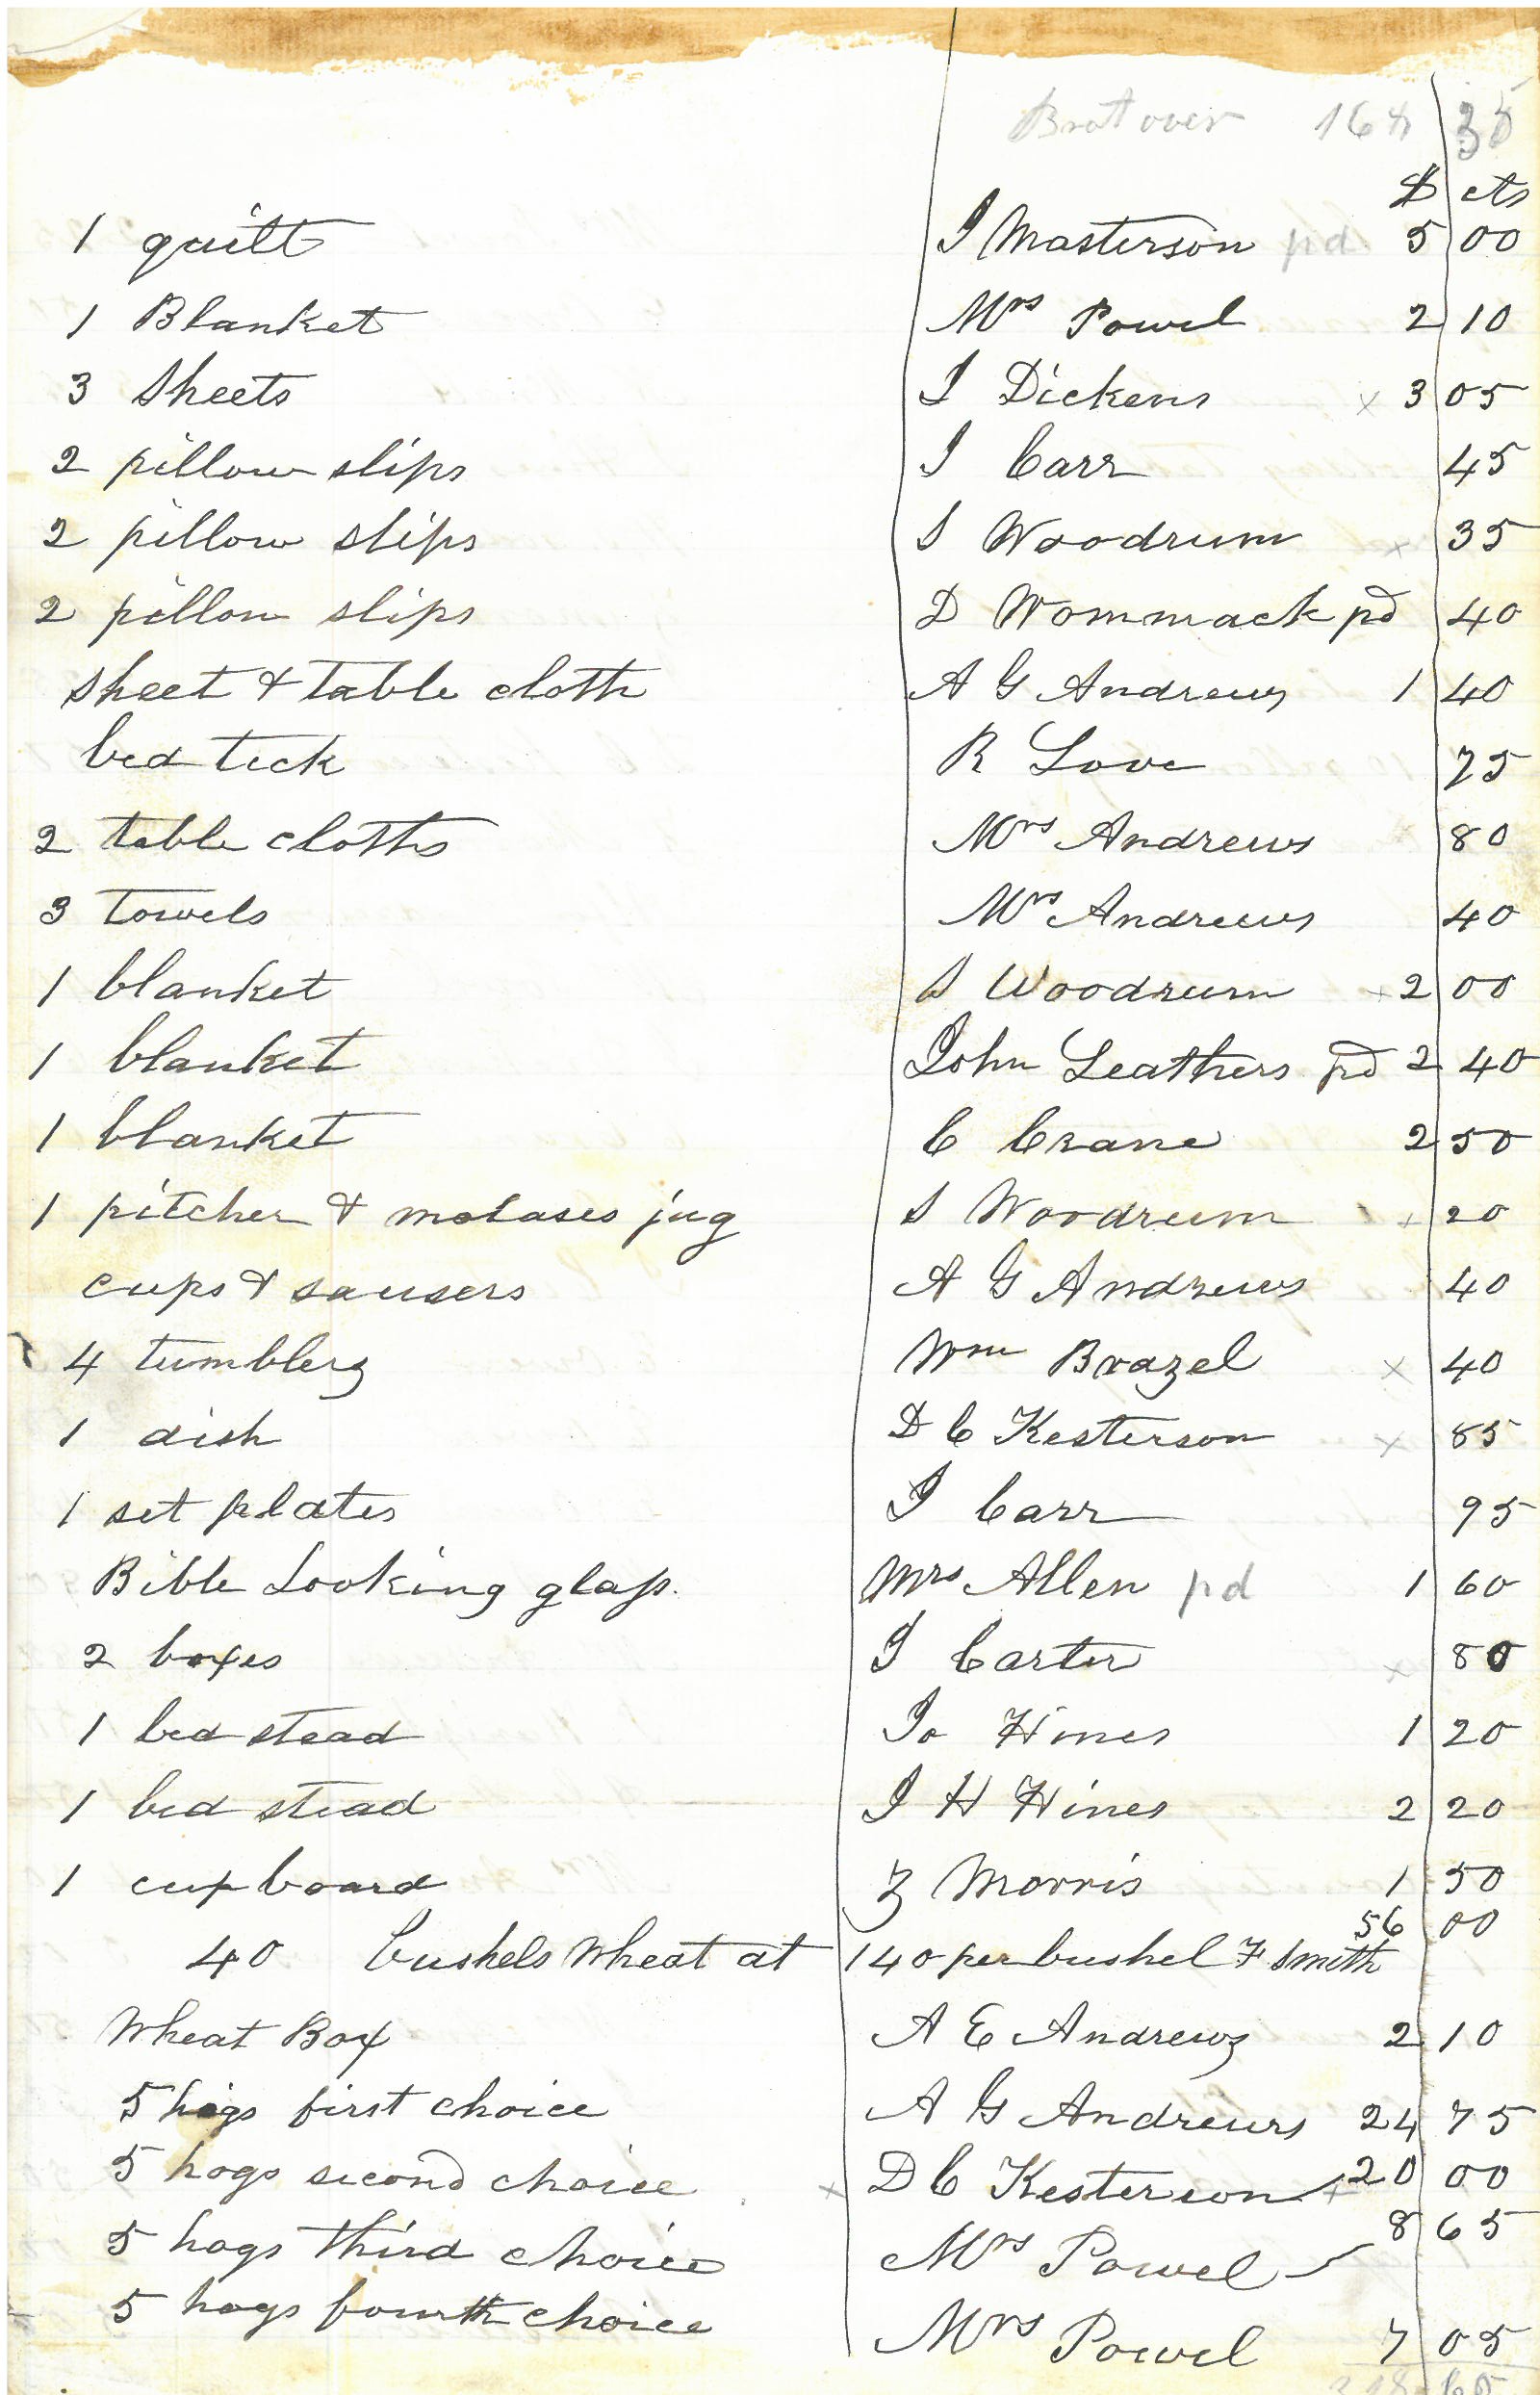 Brot over 168 35
$ cts
1 quilt J Masterson pd 5 00
1 Blanket Mrs Powel 2 10
3 Sheets J Dickens x 3 05
2 pillow slips J Carr 45
2 pillow slips S Woodrum x 35
2 pillow slips D Wommack pd 40
sheet & table cloth A G Andrews 1 40
bed tick R Love 75
2 table cloths Mrs Andrews 80
3 towels Mrs Andrews 40
1 blanket S Woodrum x 2 00
1 blanket John Leathers pd 2 40
1 blanket C Crane 2 50
1 pitcher & molases jug S Woodrum x 20
cups & sausers A G Andrews 40
4 tumblers Wm Brazel x 40
1 dish D C Kesterson x 85
1 set plates J Carr 95
Bible Looking glass. Mrs Allen pd 1 60
2 boxes J Carter x 80
1 bed stead Jo Hines 1 20
1 bed stead J H Hines 2 20
1 cupboard Z Morris 1 50
56 00
40 bushels Wheat at 140 per bushel F Smith
Wheat Box A E Andrews 2 10
5 hogs first choice A G Andrews 24 75
5 hogs second choice x D C Kesterson x 20 00
5 hogs third choice Mrs Powel 8 65
5 hogs fourth choice Mrs Powel 7 05